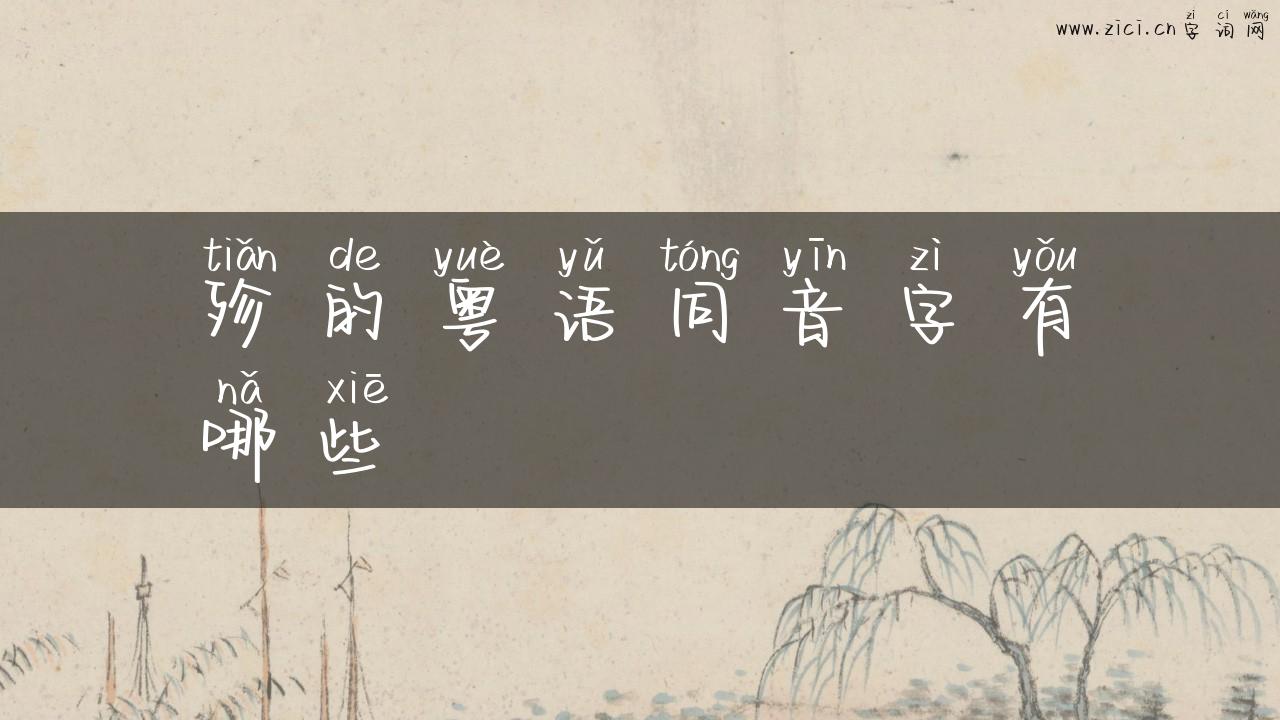 zì cí wǎng
www.zici.cn 字词网
tiǎn de yuè yǔ tóng yīn zì yǒu
殄的粤语同音字有
nǎ xiē
哪些